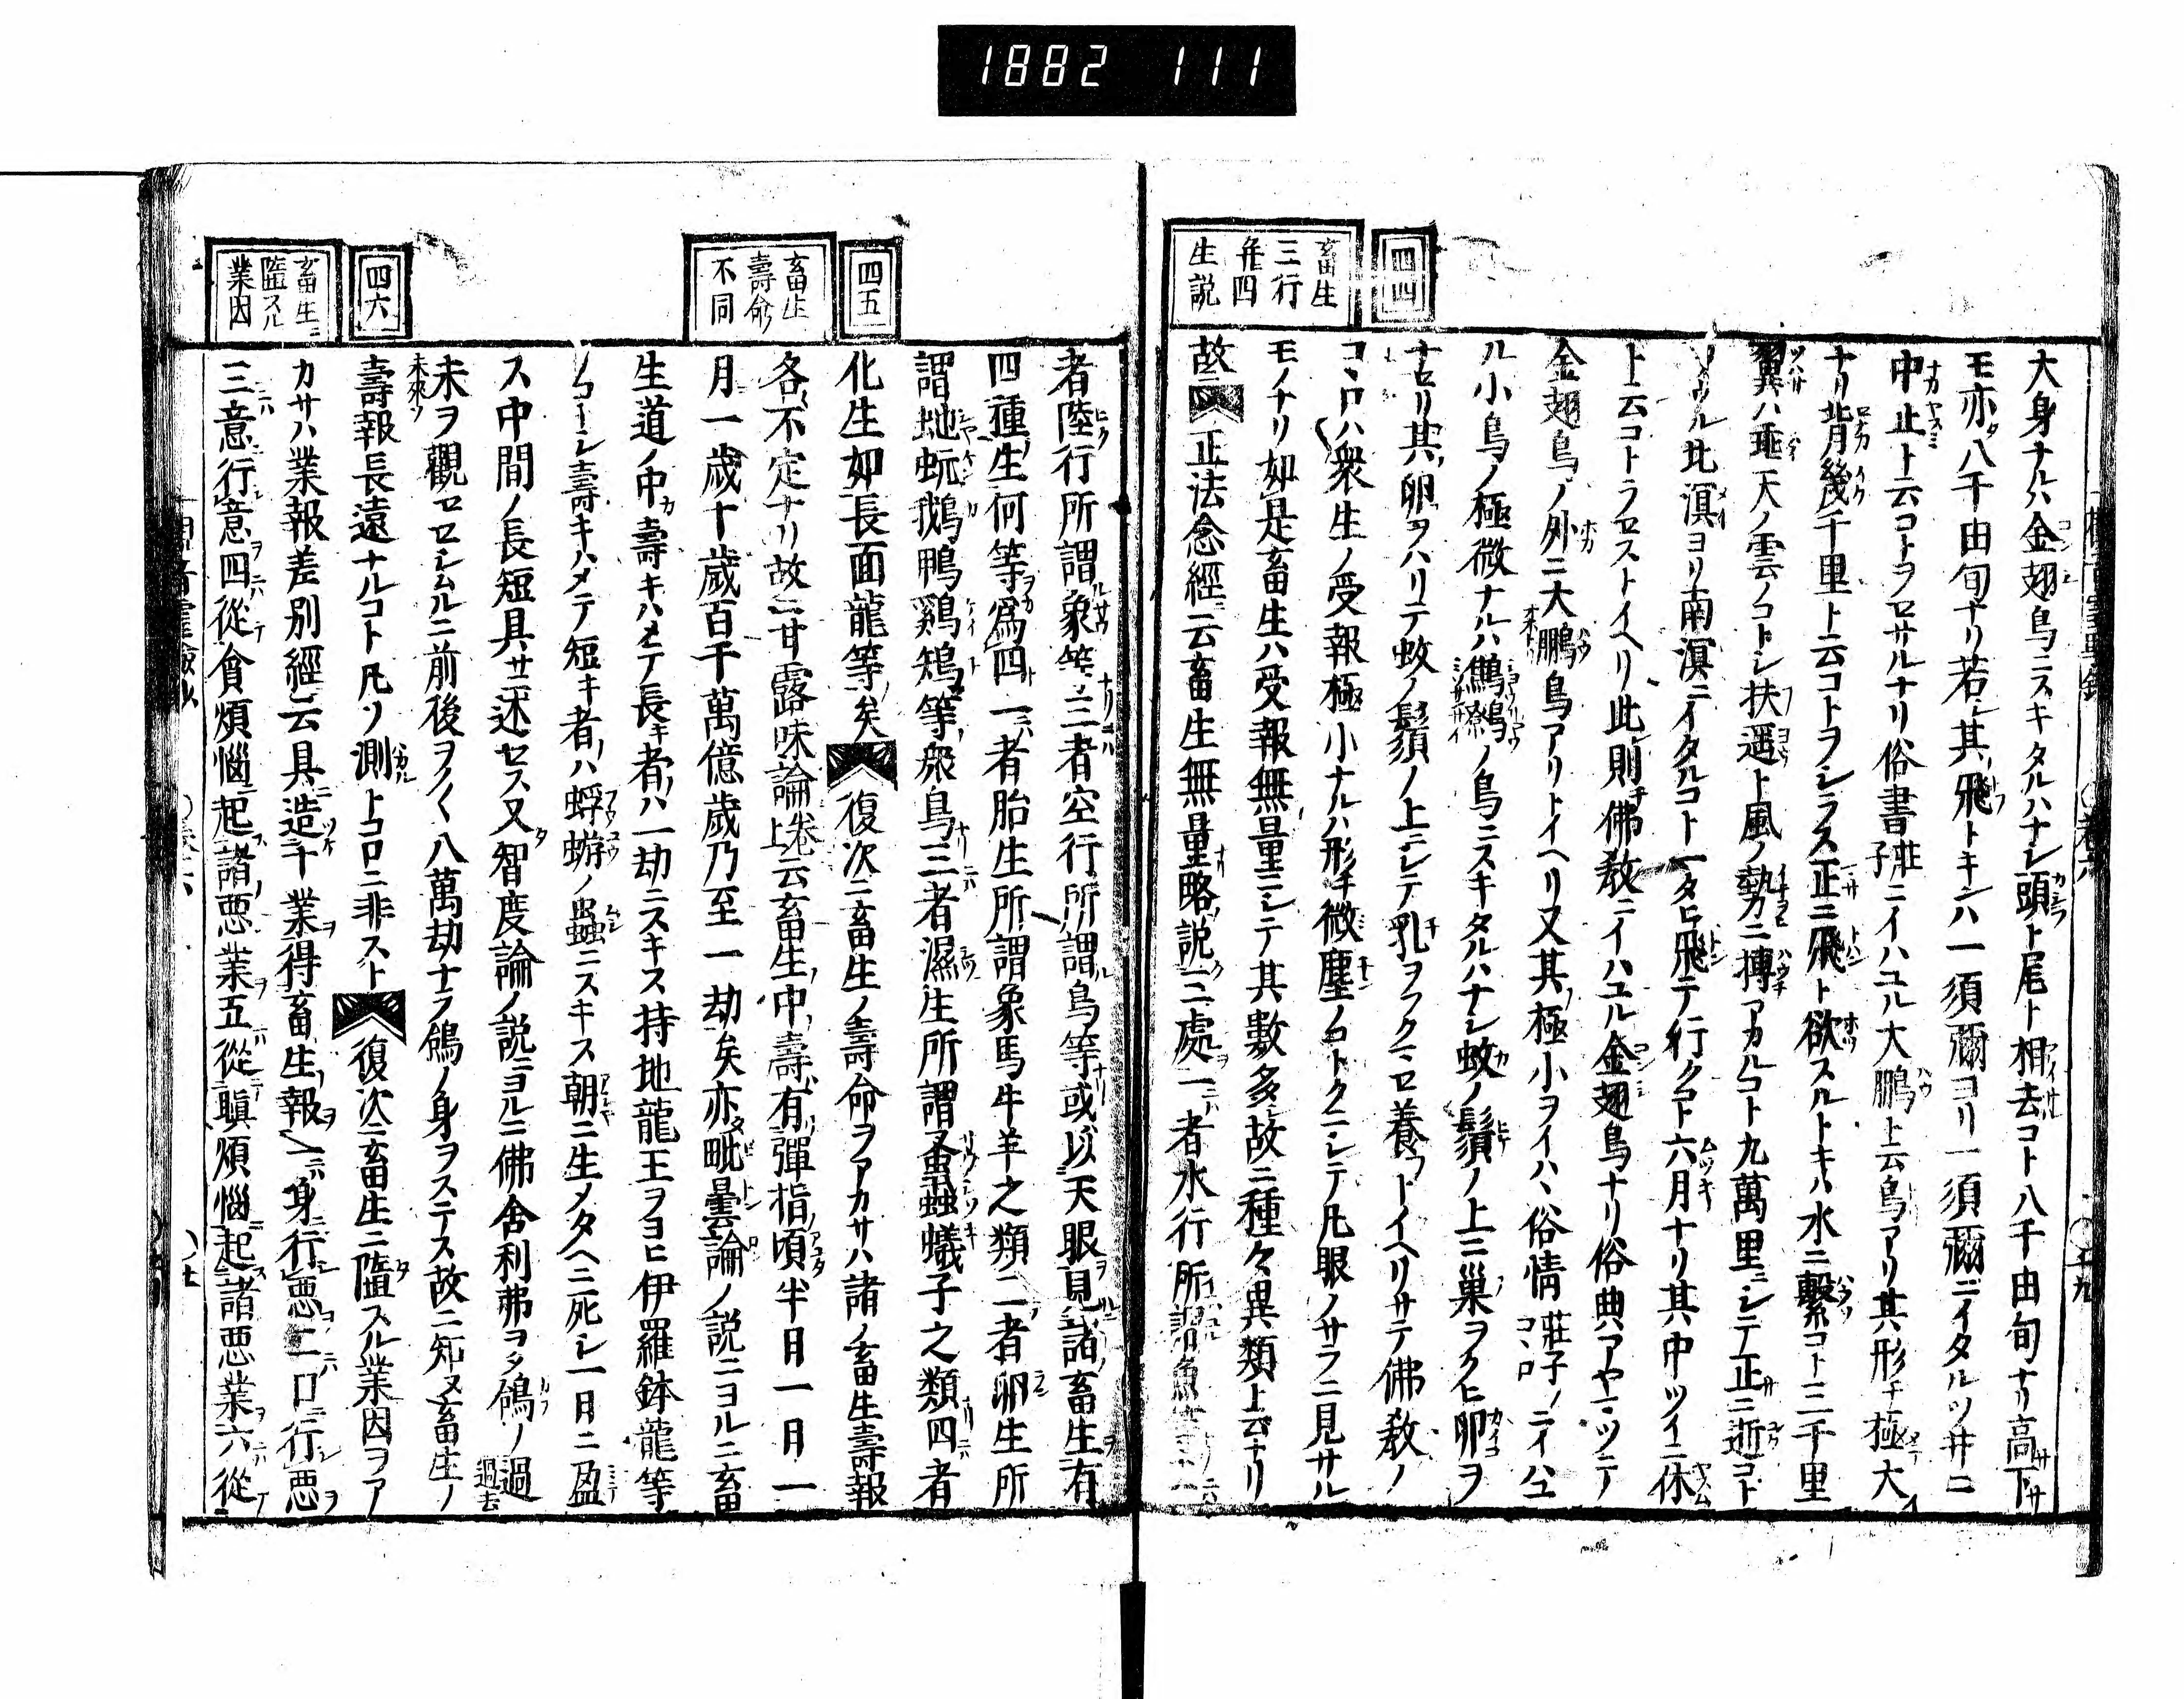 1882 111
四四
畜生
三行
并四
生説
大身ナルハ金翅鳥ニスキタルハナシ頭ト尾ト相去コト八千由旬ナリ高下サ
モ亦八千由旬ナリ若シ其飛トキンハ一須彌ヨリ一須彌ニイタルツ井ニ
中止ト云コトヲセサルナリ俗書莊子ニイハユル大鵬ト云鳥アリ其形チ極大
ナリ背幾千里ト云コトヲシラス正ニ飛ト欲スルトキハ水ニ繫コト三千里
翼ハ垂天ノ雲ノコトシ扶遥ト風ノ勢ニ搏アカルコト九萬里ニシテ正ニ逝コト
ソウル北溟ヨリ南溟ニイタルコト一タヒ飛テ行クコト六月ナリ其中ツイニ休
ト云コトラセストイヘリ此則佛敎ニイハユル金翅鳥ナリ俗典アヤマツテ
金翅鳥ノ外ニ大鵬鳥アリトイヘリ又其極小ヲイハヽ俗情莊子ノコヽロニイハ
ル小鳥ノ極微ナルハ鷦鷯ノ鳥ニスキタルハナシ蚊ノ鬚ノ上ニ巢ヲクヒ卵ヲ
ナセリ其卵ヲハリテ蚊ノ鬚ノ上ニシテ乳ヲフクマセ養フトイヘリサテ佛敎ノ
コヽロハ衆生ノ受報極小ナルハ形チ微塵ノコトクニシテ凡眼ノサラニ見サル
モノナリ如是畜生ハ受報無量ニシテ其數多故ニ種々異類上云ナリ
故ニ正法念經ニ云畜生無量略說三處一者水行所謂魚等二
者陸行所謂象等三者空行所謂鳥等或以天眼見諸畜生有
四種生何等爲四一者胎生所謂象馬牛羊之類二者卵生所
謂虵蚖鵝鴨鷄雉等衆鳥三者濕生所謂蚤蝨蟻子之類四者
化生如長面龍等矣復次ニ畜生ノ壽命ヲアカサハ諸ノ畜生壽報
各不定ナリ故ニ甘露味論卷上云畜生中壽有彈指頃半日一月一
月一歲十歲百千萬億歲乃至一劫矣亦毗曇論ノ説ニヨルニ畜
生道ノ中壽キハメテ長キ者ハ一劫ニスキス持地龍王ヲヨヒ伊羅鉢龍等
ノコトシ壽キハメテ短キ者ハ蜉蝣ノ蟲ニスキス朝ニ生メタヘニ死シ一日ニ盈
ス中間ノ長短具サニ述セス又智度論ノ説ニヨルニ佛舍利弗ヲタ鴿ノ過去
未來ヲ觀セセシムルニ前後ヲノ〱八萬劫ナラ鴿ノ身ヲステス故ニ知ヌ畜生ノ
壽報長遠ナルコト凡ソ測トコロニ非スト復次ニ畜生ニ墮スル業因ヲア
カサハ業報差別經ニ云具造十業得畜生報一身行惡二口行惡
三意行意四從貪煩惱起諸惡業五從瞋煩惱起諸惡業六從
四五
畜生
壽命
不同
四六
畜生ニ
墮スル
業因